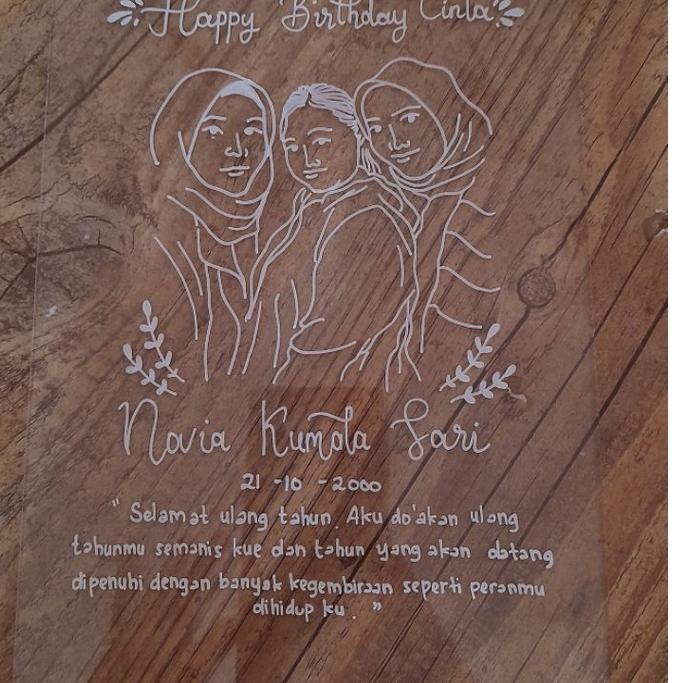 Happy Birthday Cinta
Novia Kumala Sari
21 -10 -2000
" Selamat ulang tahun. Aku do'akan ulang
tahunmu semanis kue dan tahun yang akan datang
dipenuhi dengan banyak kegembiraan seperti peranmu
dihidup ku. "